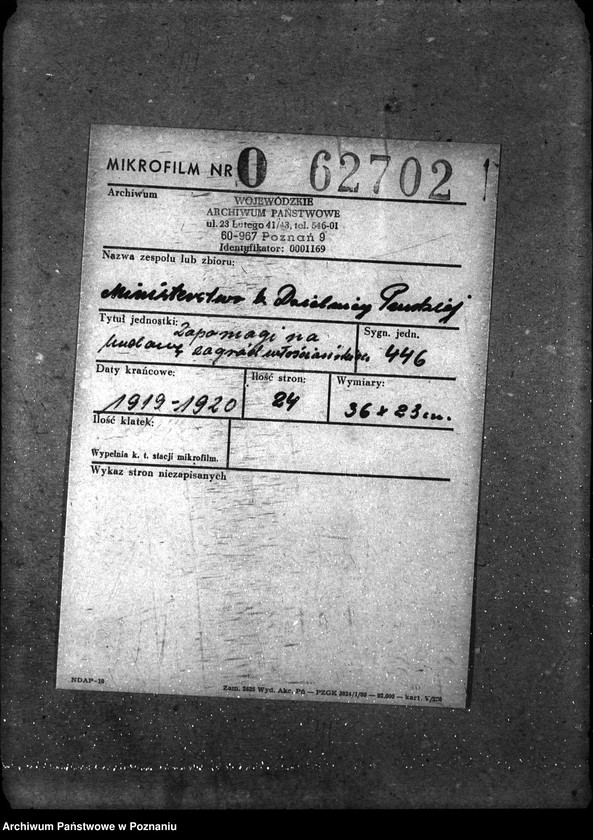 MIKROFILM NR O 62702
Archiwum
WOJEWÓDZKIE
ARCHIWUM PAŃSTWOWE
ul. 23 Lutego 41/43, tel. 546-01
60-967 Poznań 9
Identyfikator: 0001169
Nazwa zespołu lub zbioru:
Ministerstwo b. Dzielnicy Pruskiej
Tytuł jednostki: Zapomagi na
budowę zagród włościańskich
Sygn. jedn.
446
Daty krańcowe:
1919-1920
Ilość stron:
24
Wymiary:
36 x 23 cm.
Ilość klatek:
Wypełnia k. t. stacji mikrofilm.
Wykaz stron niezapisanych
NDAP-10
Zam. Wyd. Akc. Pń — PZGK
Archiwum Państwowe w Poznaniu